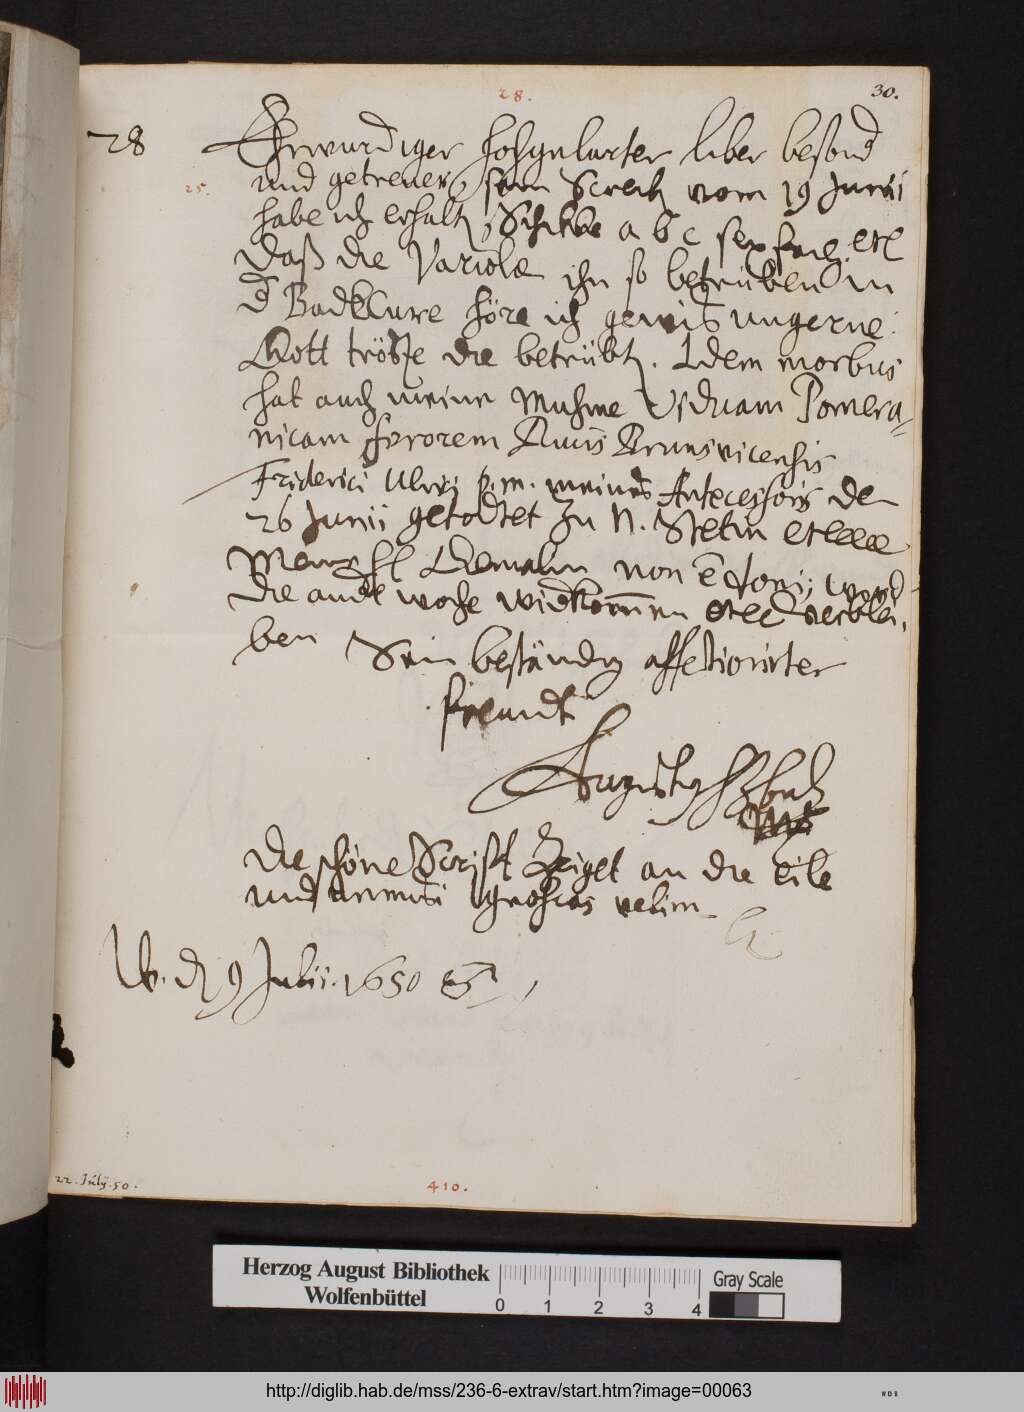 28.
30.
28
Ehrwurdiger Hochgelarter liber besond
25.
und getrewer, sein Screib vom 19 Junii
habe ich erhalt, Schikke a b c
Daß die Variolæ ihn so betrüben in
d BadkCure höre ich gewis ungerne:
Gott tröste die betrübt. Idem morbus
hat auch meine Muhme Viduam Pomera=
nicam sororem Ducis Brunsvicensis
Friderici Ulrici p. m. meines Antecessoris den
26 Junii getodtet zu N. Stetin
Gemalin von
die andr woche widkommen verblei,
ben Sein beständig affectionirter
freundt
Augustus HzBuL
Die schöne Scrift zeiget an die eile
und
W. d 9 Julii. 1650
22. Julÿ. 50.
410.
Herzog August Bibliothek
Wolfenbüttel
0 1 2 3 4
Gray Scale
http://diglib.hab.de/mss/236-6-extrav/start.htm?image=00063